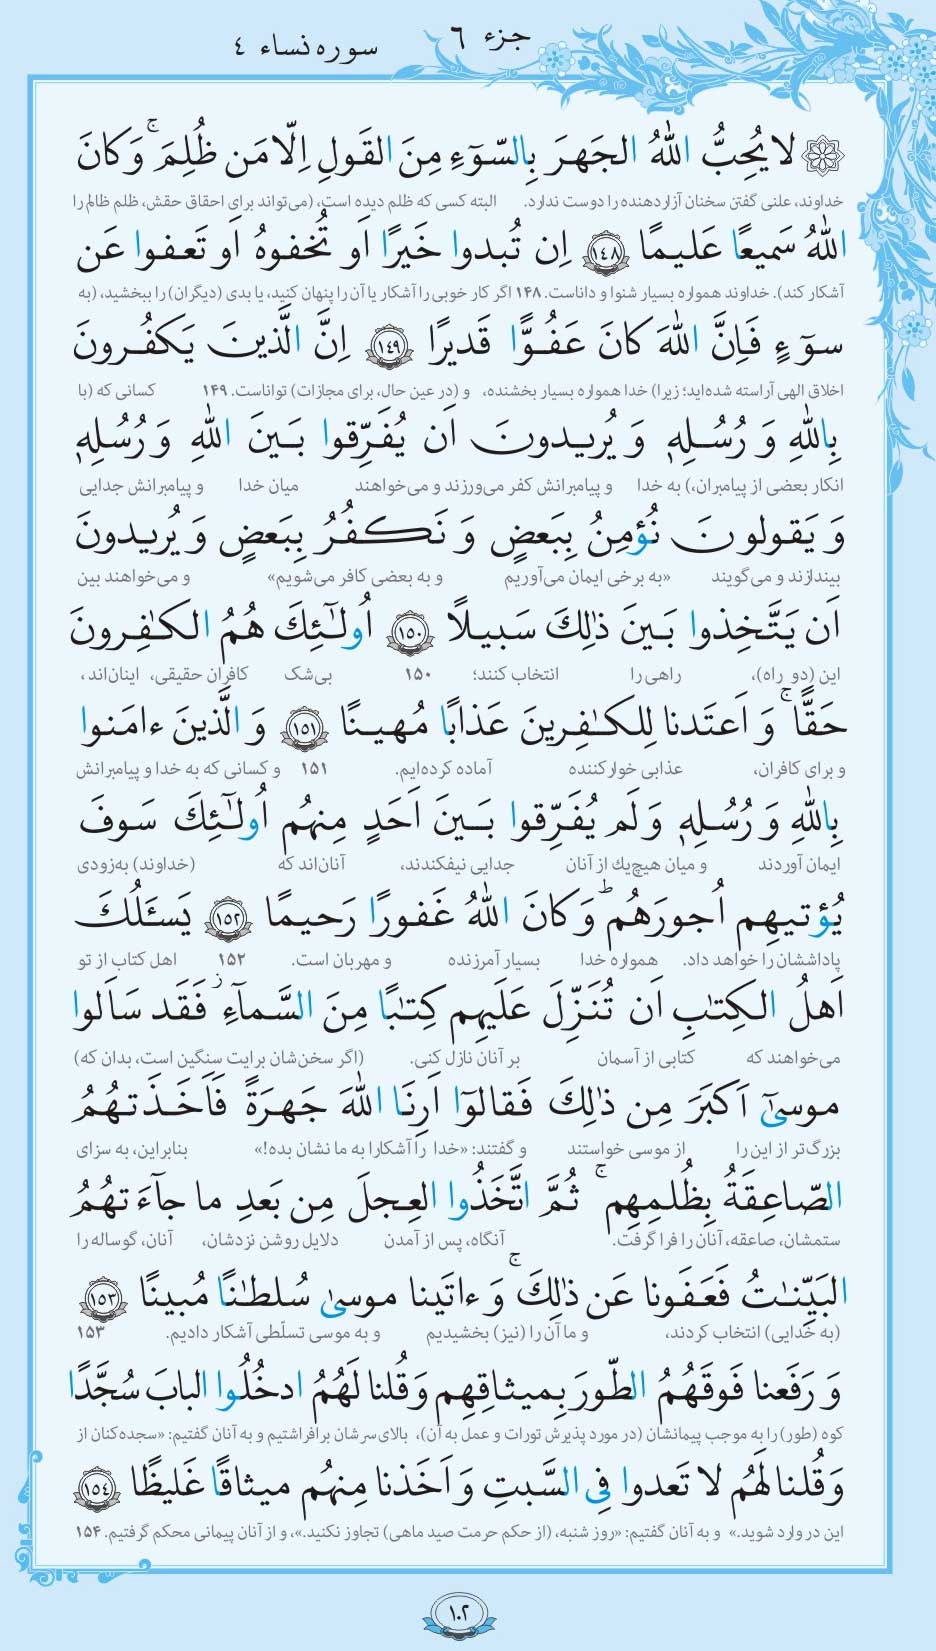 جزء ٦
سوره نساء ٤
لا یُحِبُّ اللهُ الجَهرَ بِالسّوٓءِ مِنَ القَولِ اِلّا مَن ظُلِمَ ۚ وَ کانَ
خداوند، علنی گفتن سخنان آزاردهنده را دوست ندارد. البته کسی که ظلم دیده است، (می‌تواند برای احقاق حقش، ظلم ظالم را
اللهُ سَمیعًا عَلیمًا ١٤٨ اِن تُبدوا خَیرًا اَو تُخفوهُ اَو تَعفوا عَن
آشکار کند). خداوند همواره بسیار شنوا و داناست. ۱۴۸ اگر کار خوبی را آشکار یا آن را پنهان کنید، یا بدی (دیگران) را ببخشید، (به
سوٓءٍ فَاِنَّ اللهَ کانَ عَفُوًّا قَدیرًا ١٤٩ اِنَّ الَّذینَ یَکفُرونَ
اخلاق الهی آراسته شده‌اید؛ زیرا) خدا همواره بسیار بخشنده، و (در عین حال، برای مجازات) تواناست. ۱۴۹ کسانی که (با
بِاللهِ وَ رُسُلِهٖ وَ یُریدونَ اَن یُفَرِّقوا بَینَ اللهِ وَ رُسُلِهٖ
انکار بعضی از پیامبران،) به خدا و پیامبرانش کفر می‌ورزند و می‌خواهند میان خدا و پیامبرانش جدایی
وَ یَقولونَ نُؤمِنُ بِبَعضٍ وَ نَکفُرُ بِبَعضٍ وَ یُریدونَ
بیندازند و می‌گویند «به برخی ایمان می‌آوریم و به بعضی کافر می‌شویم» و می‌خواهند بین
اَن یَتَّخِذوا بَینَ ذٰلِكَ سَبیلًا ١٥٠ اُولٰٓئِكَ هُمُ الکٰفِرونَ
این (دو راه)، راهی را انتخاب کنند؛ ۱۵۰ بی‌شک کافران حقیقی، اینان‌اند،
حَقًّا ۚ وَ اَعتَدنا لِلکٰفِرینَ عَذابًا مُهینًا ١٥١ وَ الَّذینَ ءامَنوا
و برای کافران، عذابی خوارکننده آماده کرده‌ایم. ۱۵۱ و کسانی که به خدا و پیامبرانش
بِاللهِ وَ رُسُلِهٖ وَ لَم یُفَرِّقوا بَینَ اَحَدٍ مِنهُم اُولٰٓئِكَ سَوفَ
ایمان آوردند و میان هیچ‌یك از آنان جدایی نیفکندند، آنان‌اند که (خداوند) به‌زودی
یُؤتیهِم اُجورَهُم ۗ وَ کانَ اللهُ غَفورًا رَحیمًا ١٥٢ یَسـَٔلُكَ
پاداششان را خواهد داد. همواره خدا بسیار آمرزنده و مهربان است. ۱۵۲ اهل کتاب از تو
اَهلُ الکِتٰبِ اَن تُنَزِّلَ عَلَیهِم کِتٰبًا مِنَ السَّمآءِ ۚ فَقَد سَاَلوا
می‌خواهند که کتابی از آسمان بر آنان نازل کنی. (اگر سخن‌شان برایت سنگین است، بدان که)
موسیٰٓ اَکبَرَ مِن ذٰلِكَ فَقالوٓا اَرِنَا اللهَ جَهرَةً فَاَخَذَتهُمُ
بزرگ‌تر از این را از موسی خواستند و گفتند: «خدا را آشکارا به ما نشان بده!» بنابراین، به سزای
الصّاعِقَةُ بِظُلمِهِم ۚ ثُمَّ اتَّخَذُوا العِجلَ مِن بَعدِ ما جآءَتهُمُ
ستمشان، صاعقه، آنان را فرا گرفت. آنگاه، پس از آمدن دلایل روشن نزدشان، آنان، گوساله را
البَیِّنٰتُ فَعَفَونا عَن ذٰلِكَ ۚ وَ ءاتَینا موسیٰ سُلطٰنًا مُبینًا ١٥٣
(به خدایی) انتخاب کردند، و ما آن را (نیز) بخشیدیم و به موسی تسلّطی آشکار دادیم. ۱۵۳
وَ رَفَعنا فَوقَهُمُ الطّورَ بِمیثاقِهِم وَ قُلنا لَهُمُ ادخُلُوا البابَ سُجَّدًا
کوه (طور) را به موجب پیمانشان (در مورد پذیرش تورات و عمل به آن)، بالای سرشان برافراشتیم و به آنان گفتیم: «سجده‌کنان از
وَ قُلنا لَهُم لا تَعدوا فِی السَّبتِ وَ اَخَذنا مِنهُم میثاقًا غَلیظًا ١٥٤
این در وارد شوید.» و به آنان گفتیم: «روز شنبه، (از حکم حرمت صید ماهی) تجاوز نکنید.»، و از آنان پیمانی محکم گرفتیم. ۱۵۴
١٠٢